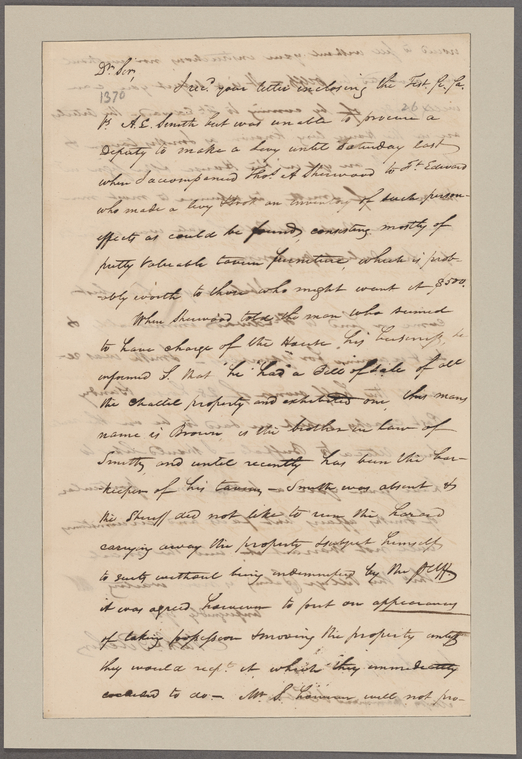 Dr Sir,
1370
I recd your letter inclosing the Test. fi. fa.
vs. A.C. Smith but was unable to procure a
Deputy to make a levy until Saturday last
when I accompanied Thos. A Sherwood to Ft. Edward
who made a levy & took an Inventory of such person-
effects as could be found, consisting mostly of
pretty valuable tavern furniture, which is prob-
ably worth to those who might want it $500.
When Sherwood told the man who seemed
to have charge of the House his business, he
informed S. that he had a Bill of Sale of all
the chattel property and exhibited one, this mans
name is Brown, is the brother in law of
Smith, and until recently has been the bar-
keeper of his tavern – Smith was absent &
the Sheriff did not like to run the hazard
carrying away the property & subject himself
to suits without being indemnified by the Plffs
it was agreed however to put on appearances
of taking possession & moving the property unless
they would recpt. it, which they immediately
to do – Mr. S. however will not pro-